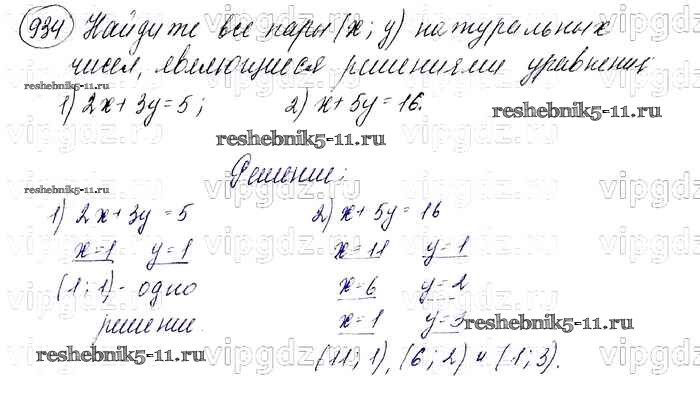 934 Найдите все пары (x; y) натуральных
чисел, являющиеся решениями уравнения
1) 2x + 3y = 5; 2) x + 5y = 16.
reshebnik5-11.ru
reshebnik5-11.ru
reshebnik5-11.ru
Решение:
reshebnik5-11.ru
1) 2x + 3y = 5 2) x + 5y = 16
x = 1 y = 1 x = 11 y = 1
(1; 1) - одно x = 6 y = 2
решение. x = 1 y = 3
reshebnik5-11.ru
reshebnik5-11.ru
(11; 1), (6; 2) и (1; 3).
vipgdz.ru